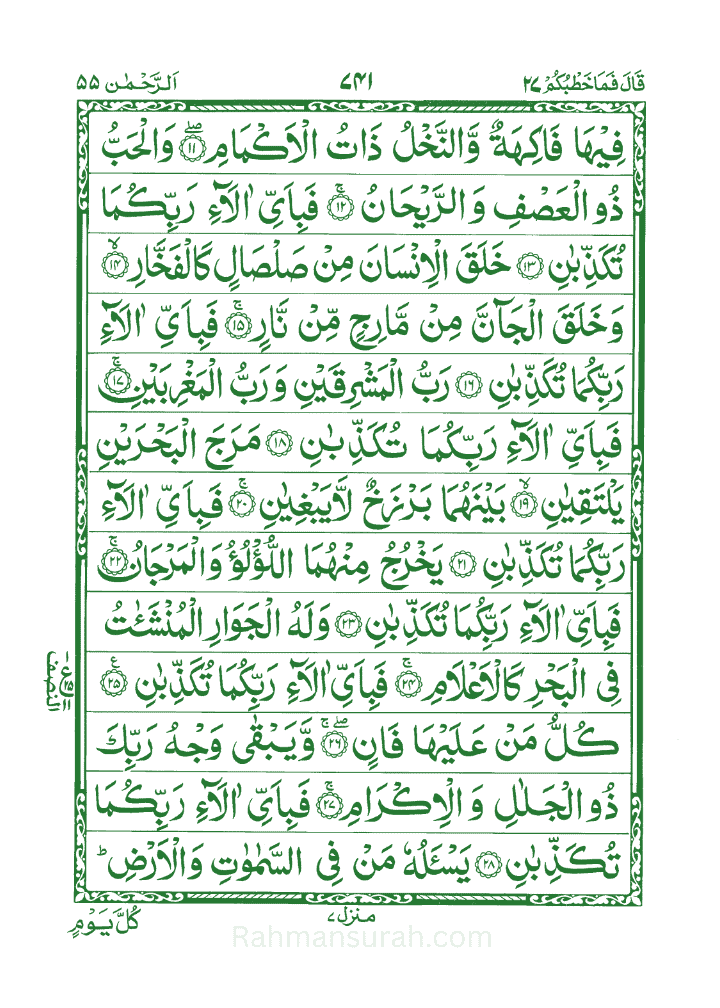 قَالَ فَمَا خَطْبُكُمْ ٢٧ ٧٤١ اَلرَّحْمٰن ٥٥
فِيْهَا فَاكِهَةٌ وَّالنَّخْلُ ذَاتُ الْاَكْمَامِ ۖ ١١ وَالْحَبُّ
ذُو الْعَصْفِ وَالرَّيْحَانُ ۚ ١٢ فَبِاَيِّ اٰلَآءِ رَبِّكُمَا
تُكَذِّبٰنِ ١٣ خَلَقَ الْاِنْسَانَ مِنْ صَلْصَالٍ كَالْفَخَّارِ ۙ ١٤
وَخَلَقَ الْجَآنَّ مِنْ مَّارِجٍ مِّنْ نَّارٍ ۚ ١٥ فَبِاَيِّ اٰلَآءِ
رَبِّكُمَا تُكَذِّبٰنِ ١٦ رَبُّ الْمَشْرِقَيْنِ وَرَبُّ الْمَغْرِبَيْنِ ۚ ١٧
فَبِاَيِّ اٰلَآءِ رَبِّكُمَا تُكَذِّبٰنِ ١٨ مَرَجَ الْبَحْرَيْنِ
يَلْتَقِيٰنِ ۙ ١٩ بَيْنَهُمَا بَرْزَخٌ لَّايَبْغِيٰنِ ۚ ٢٠ فَبِاَيِّ اٰلَآءِ
رَبِّكُمَا تُكَذِّبٰنِ ٢١ يَخْرُجُ مِنْهُمَا اللُّؤْلُؤُ وَالْمَرْجَانُ ۚ ٢٢
فَبِاَيِّ اٰلَآءِ رَبِّكُمَا تُكَذِّبٰنِ ٢٣ وَلَهُ الْجَوَارِ الْمُنْشَئٰتُ
فِى الْبَحْرِ كَالْاَعْلَامِ ۚ ٢٤ فَبِاَيِّ اٰلَآءِ رَبِّكُمَا تُكَذِّبٰنِ ٢٥ ع
النصف
كُلُّ مَنْ عَلَيْهَا فَانٍ ۖۚ ٢٦ وَّيَبْقٰى وَجْهُ رَبِّكَ
ذُو الْجَلٰلِ وَالْاِكْرَامِ ۚ ٢٧ فَبِاَيِّ اٰلَآءِ رَبِّكُمَا
تُكَذِّبٰنِ ٢٨ يَسْئَلُهٗ مَنْ فِى السَّمٰوٰتِ وَالْاَرْضِ ؕ
منزل ٧
كُلَّ يَوْمٍ
Rahmansurah.com